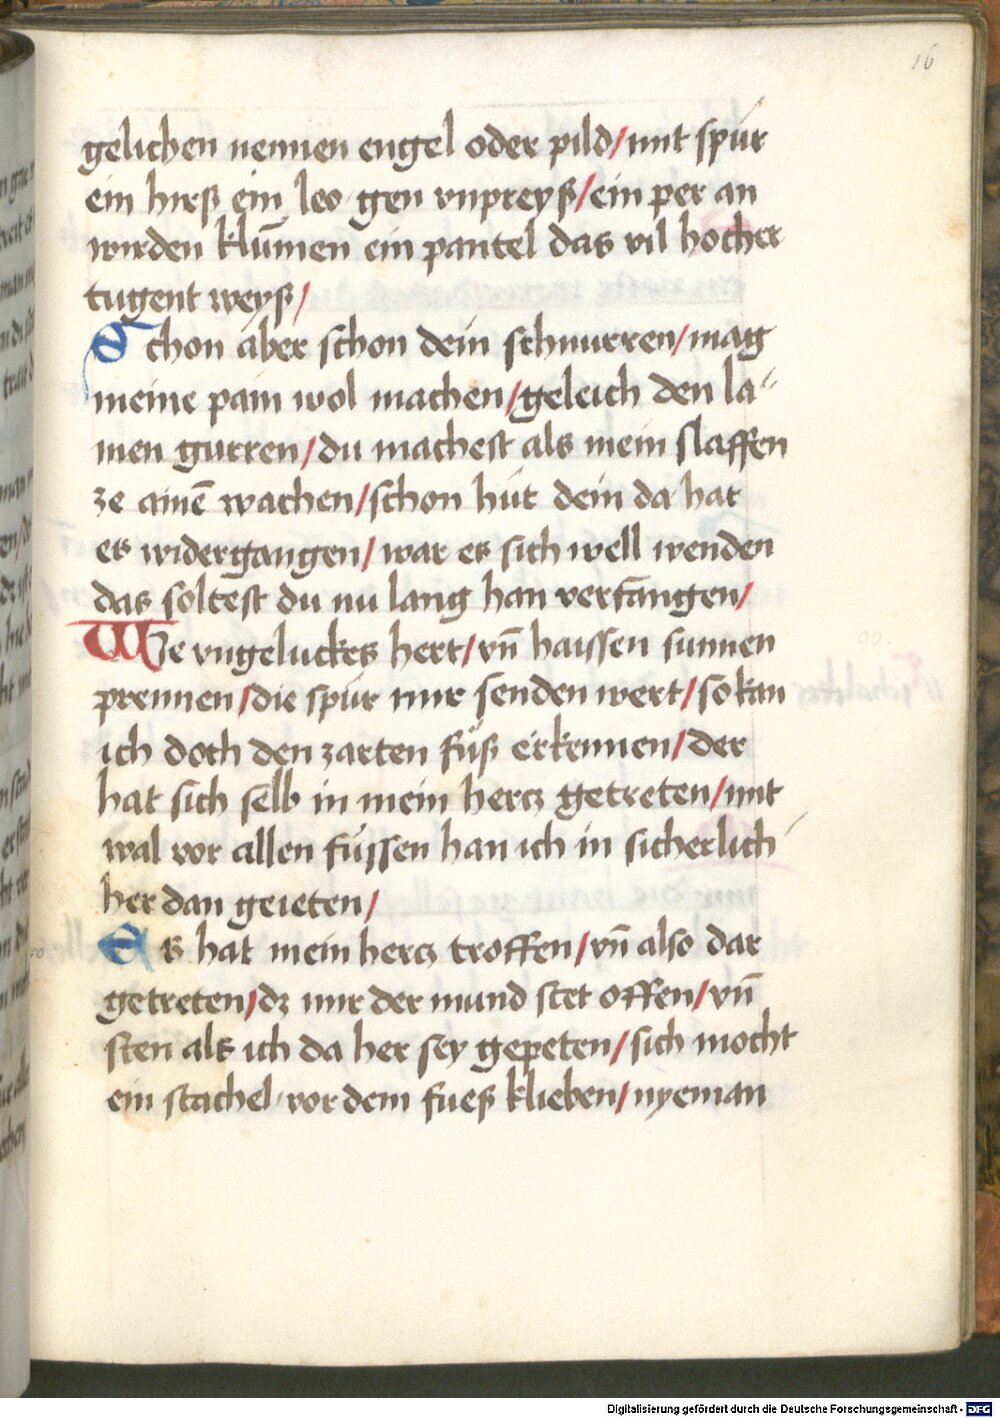 16
gelichen nennen engel oder pild/mit spur
ein hirß ein leo gen vnpreyß/ein per an
wirden klūmen ein pantel das vil hocher
tugent weyß/
Schon aber schon dein schnurren/mag
meine pain wol machen/geleich den la-
men gurren/du machest als mein slaffen
ze ainē wachen/schon hut dein da hat
es widergangen/war es sich well wenden
das soltest du nu lang han verfangen/
We vngeluckes hert/vn̄ haissen sunnen
prennen/die spur mir senden wert/so kan
ich doch den zarten fuͤß erkennen/der
hat sich selb in mein hercz getreten/mit
wal vor allen fussen han ich in sicherlich
her dan geieten/
Es hat mein hercz troffen/vn̄ also dar
getreten/dz mir der mund stet offen/vn̄
sten als ich da her sey gepeten/sich mocht
ein stachel vor dem fueß klieben/nyeman
Digitalisierung gefördert durch die Deutsche Forschungsgemeinschaft - DFG